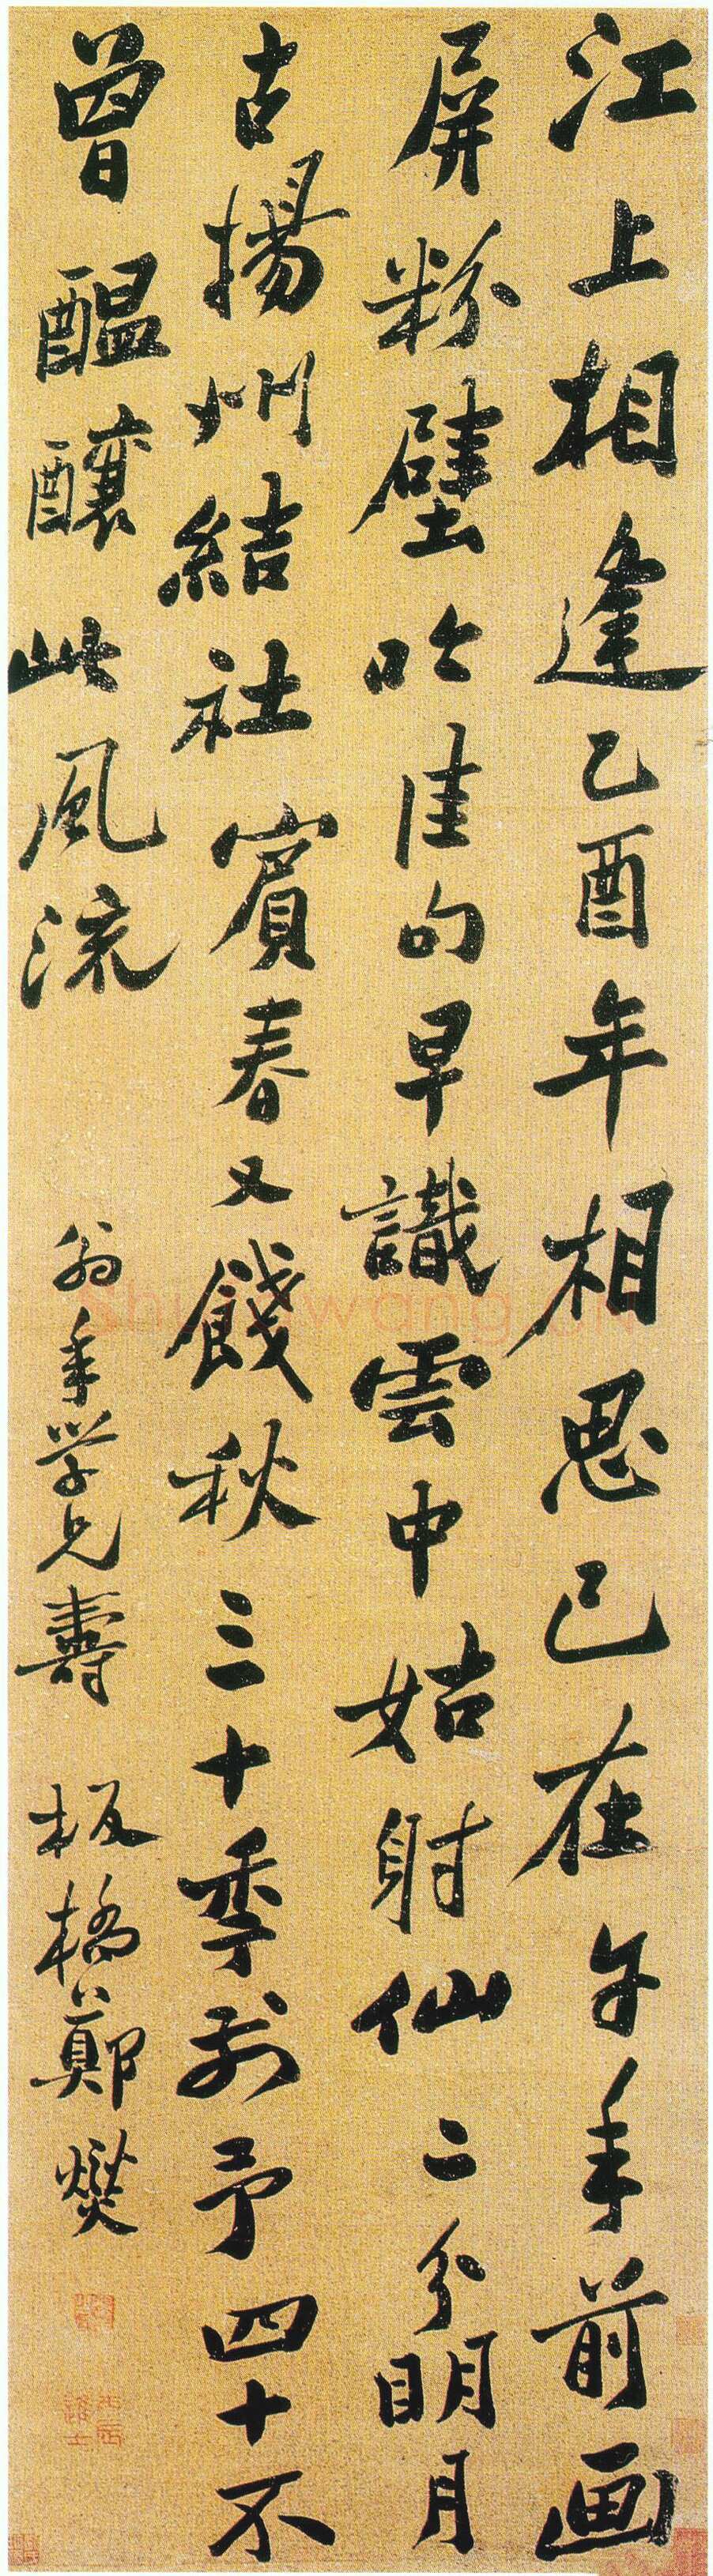 江上相逢乙酉年相思已在午年前画
屏粉壁吟佳句早識雲中姑射仙二分明月
古揚州結社賓春又餞秋三十秊別予四十不
曾醞釀此風流
年学兄壽 板橋鄭燮